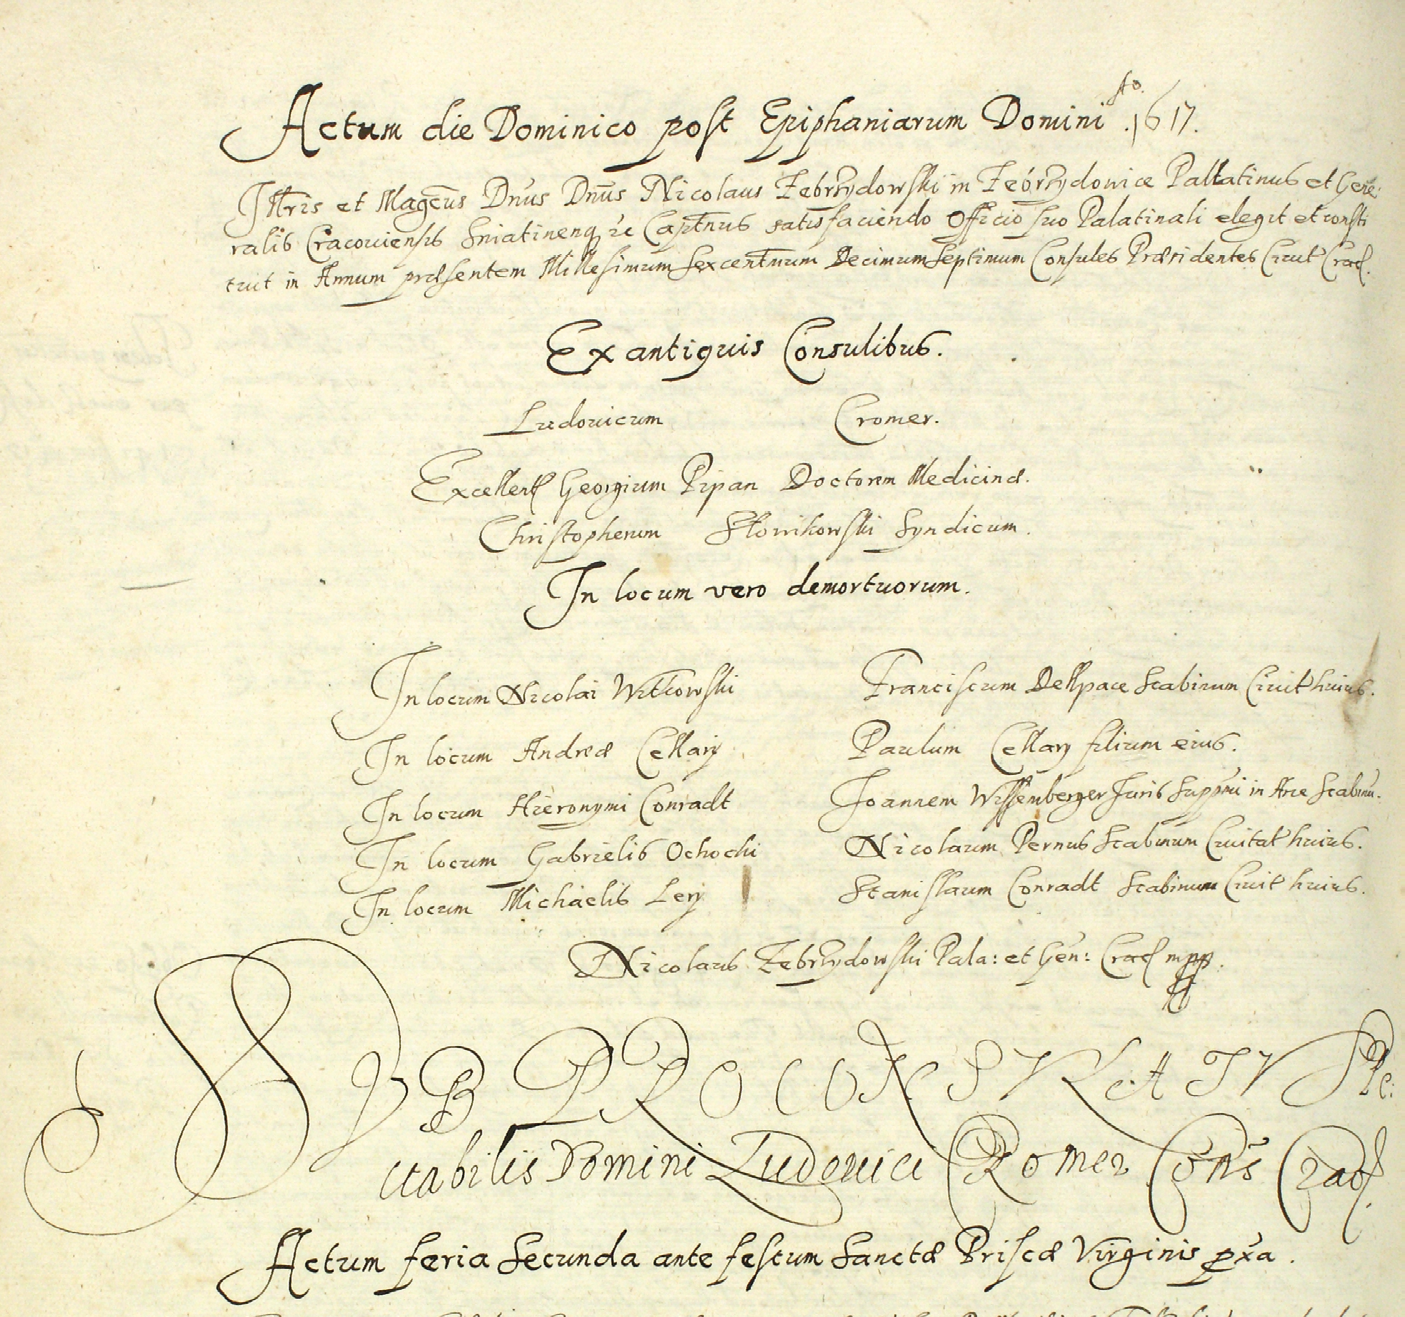 Actum die Dominico post Epiphaniarum Domini Ao. 1617.
Illris et Magcus Dnus Dnus Nicolaus Zebrzydowski in Zebrzydowice Pallatinus et Gene:
ralis Cracouiensis Sniatinenq zc Captnus satisfaciendo Officio suo Palatinali elegit et consti
tuit in Annum præsentem Millesimum Sexcentmum Decimum Septimum Consules Præsidentes Ciuit Crac.
Ex antiquis Consulibus.
Ludouicum Cromer.
Excellent Georgium Pipan Doctorem Medicinæ.
Christopherum Słowikowski Syndicum.
In locum vero demortuorum.
In locum Nicolai Witkowski Franciscum Dellpace Scabinum Ciuit huius.
In locum Andreæ Cellary Paulum Cellary filium eius.
In locum Hieronymi Conradt Joannem Wissemberger Juris Suppmi in Arce Scabinu.
In locum Gabrielis Ochocki Nicolaum Pernus Scabinum Ciuitat huius.
In locum Michaelis Lery Stanislaum Conradt Scabinum Ciuit huius.
Nicolaus Zebrzydowski Pala: et Gen: Crac mpp.
SVB PROCONSVLATV SPe:
ctabilis Domini Ludouici CRomer Cons Crac.
Actum feria Secunda ante festum Sanctæ Priscæ Virginis pxa.